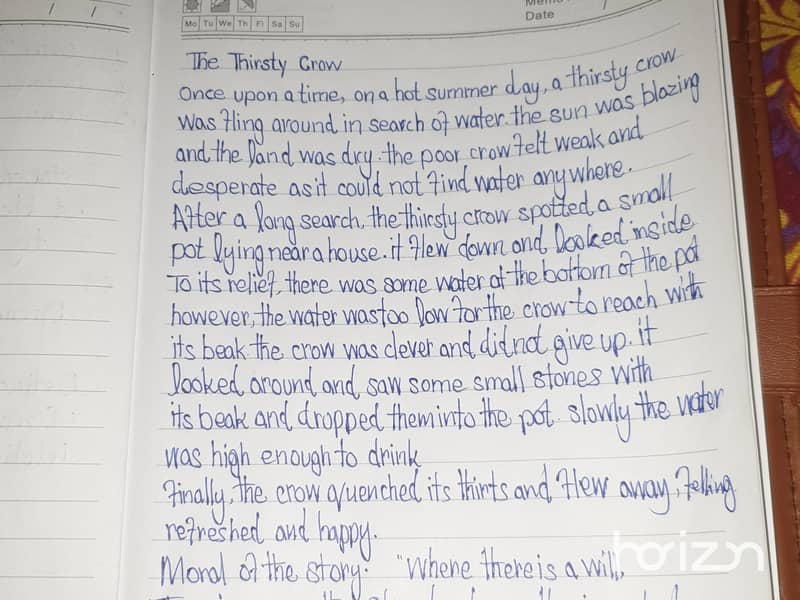 Mo Tu We Th Fi Sa Su
Memo
Date /
/ /
The Thirsty Crow
Once upon a time, on a hot summer day, a thirsty crow
was fling around in search of water. the sun was blazing
and the land was dry. the poor crow felt weak and
desperate as it could not find water anywhere.
After a long search, the thirsty crow spotted a small
pot lying near a house. it flew down and looked inside
To its relief, there was some water at the bottom of the pot
however, the water was too low for the crow to reach with
its beak the crow was clever and did not give up. it
looked around and saw some small stones with
its beak and dropped them into the pot. slowly the water
was high enough to drink
Finally, the crow quenched its thirts and flew away, felling
refreshed and happy.
Moral of the story: "Where there is a will,
horizon